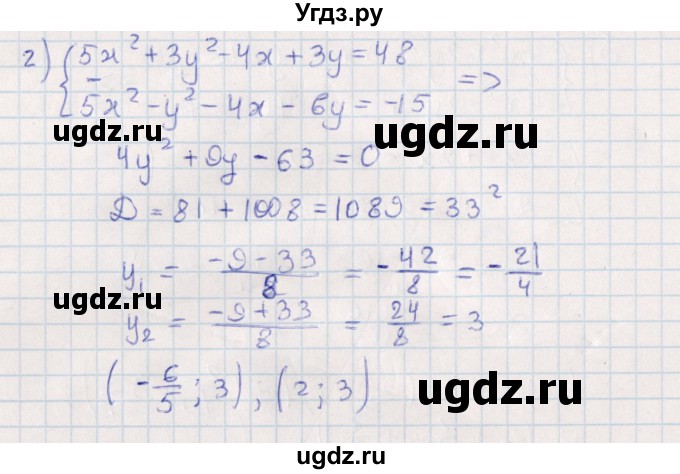 Угдз.ру
2) { 5x² + 3y² - 4x + 3y = 48
-
5x² - y² - 4x - 6y = -15 =>
ugdz.ru ugdz.ru
4y² + 9y - 63 = 0
D = 81 + 1008 = 1089 = 33²
y₁ = (-9 - 33)/8 = -42/8 = -21/4
ugdz.ru ugdz.ru
y₂ = (-9 + 33)/8 = 24/8 = 3
(-6/5; 3), (2; 3)
ugdz.ru
Угдз.ру